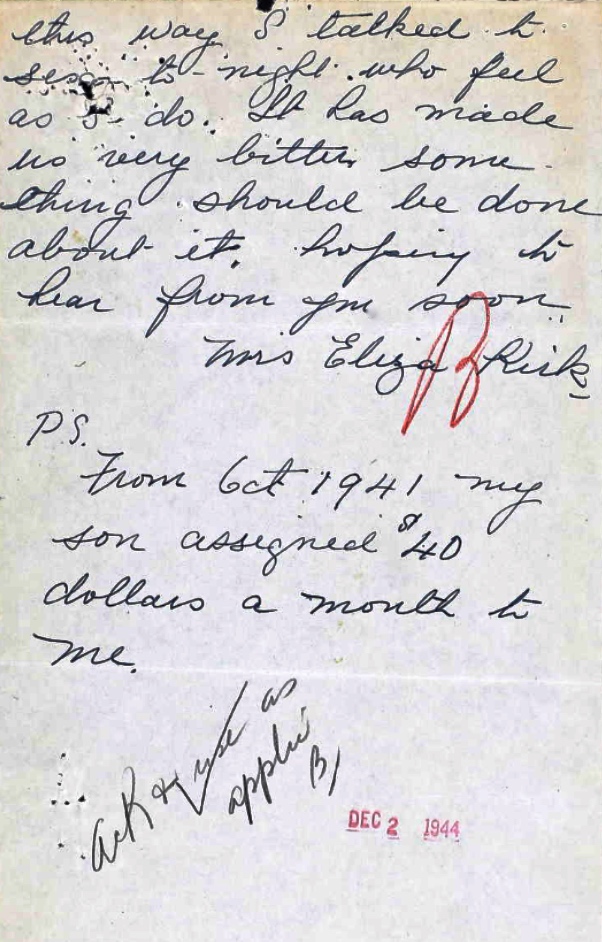 this way I talked to
to-night who feel
as I do. It has made
us very bitter some-
thing should be done
about it. hoping to
hear from you soon.
Mrs Eliza Kirk
B
P.S.
From Oct 1941 my
son assigned $40
dollars a month to
me.
Ack & use as
applic
B
DEC 2 1944